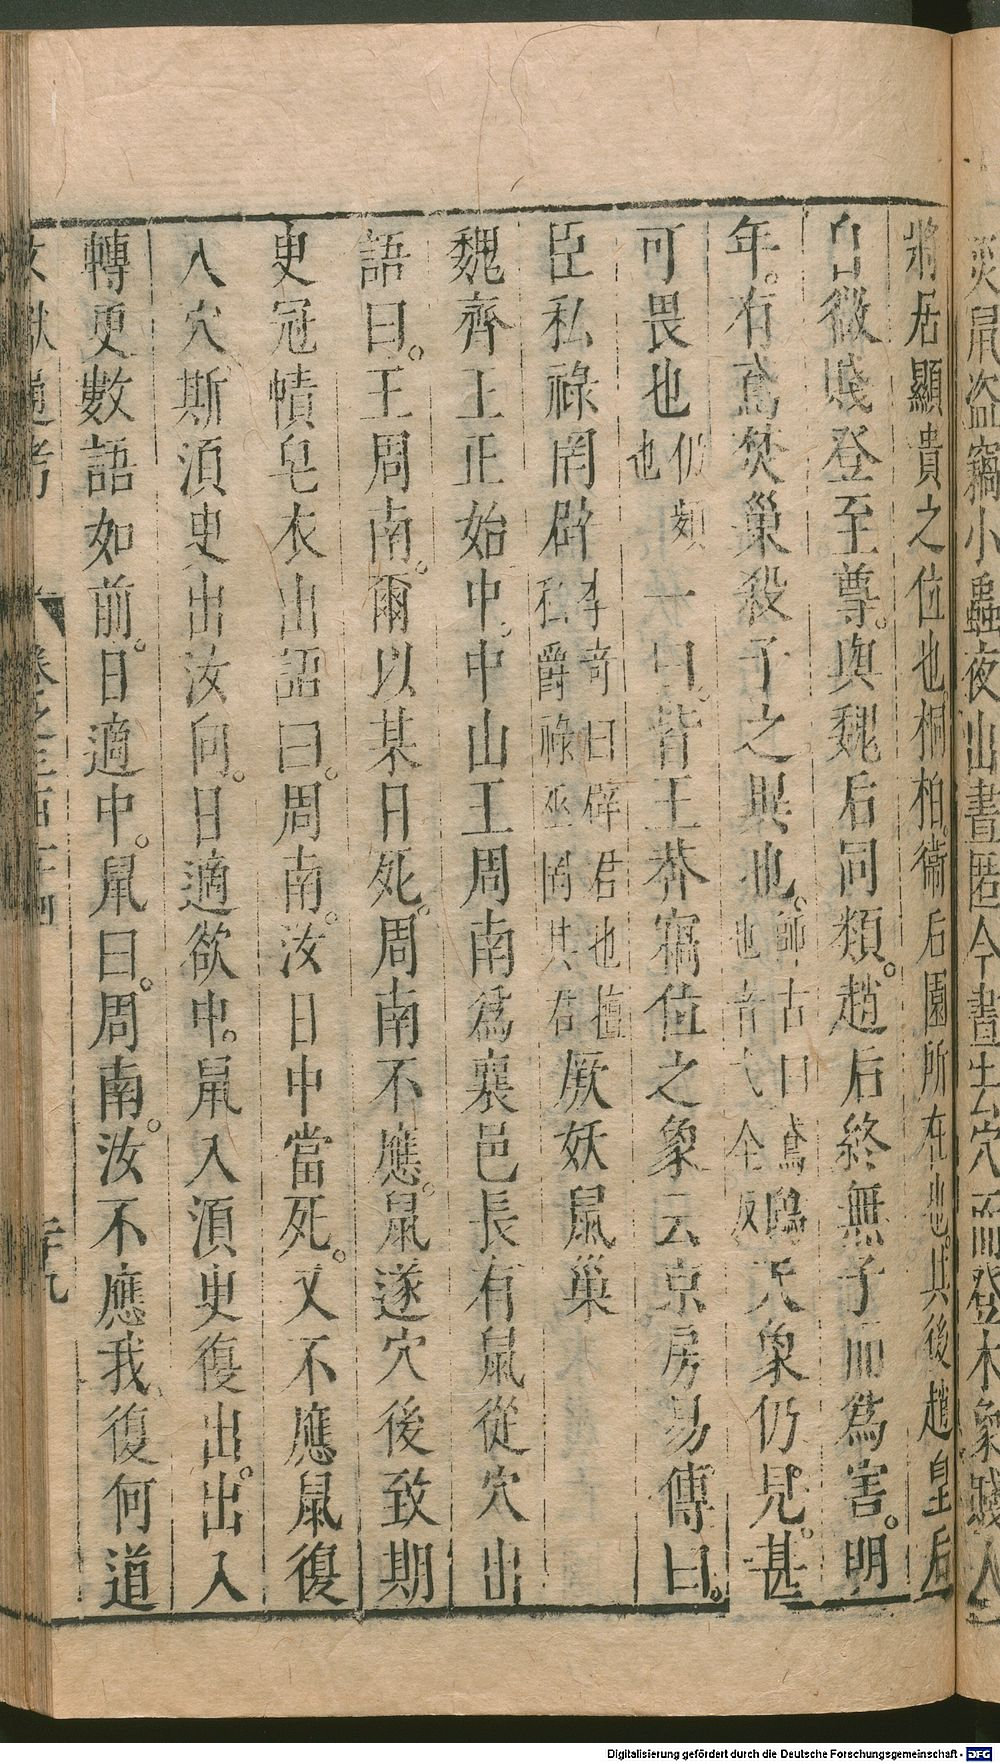 災鼠盜竊小蟲夜出晝匿今晝去穴而登木象賤人
將居顯貴之位也桐柏衞后園所在也其後趙皇后
自微賤登至尊。與魏后同類。趙后終無子而爲害。明
年。有鳶焚巢殺子之異也。師古曰鳶鴟也音弋全反天象仍見。甚
可畏也仍頻也一曰。皆王莽竊位之象云京房易傳曰。
臣私祿罔辟李奇曰辟君也擅私爵祿巫罔其君厥妖鼠巢
魏齊王正始中。中山王周南爲襄邑長有鼠從穴出
語曰。王周南。爾以某日死。周南不應。鼠遂穴後致期
更冠幘皂衣出語曰。周南。汝日中當死。又不應鼠復
入穴斯須更出汝向。日適欲中。鼠入須更復出。出入
轉更數語如前。日適中。鼠曰。周南。汝不應我、復何道
文獻通考 卷之三百十四 二十九
Digitalisierung gefördert durch die Deutsche Forschungsgemeinschaft - DFG